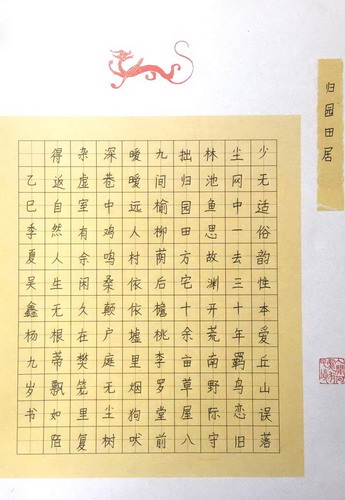 归园田居
少无适俗韵性本爱丘山误落
尘网中一去三十年羁鸟恋旧
林池鱼思故渊开荒南野际守
拙归园田方宅十余亩草屋八
九间榆柳荫后檐桃李罗堂前
暧暧远人村依依墟里烟狗吠
深巷中鸡鸣桑颠户庭无尘树
杂虚室有余闲久在樊笼里复
得返自然人生无根蒂飘如陌
乙巳季夏吴鑫杨九岁书